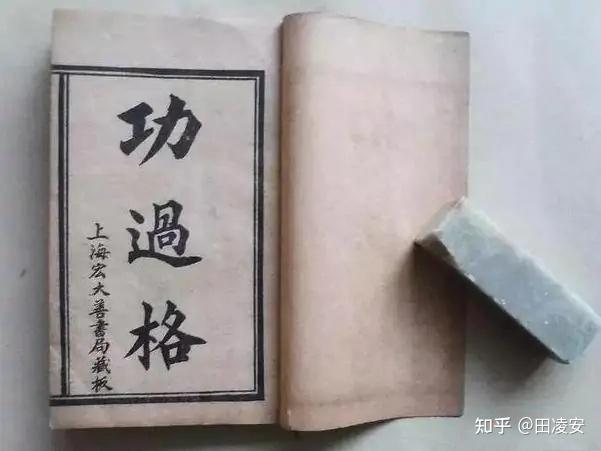 功過格
上海宏大善書局藏板
知乎 @田凌安